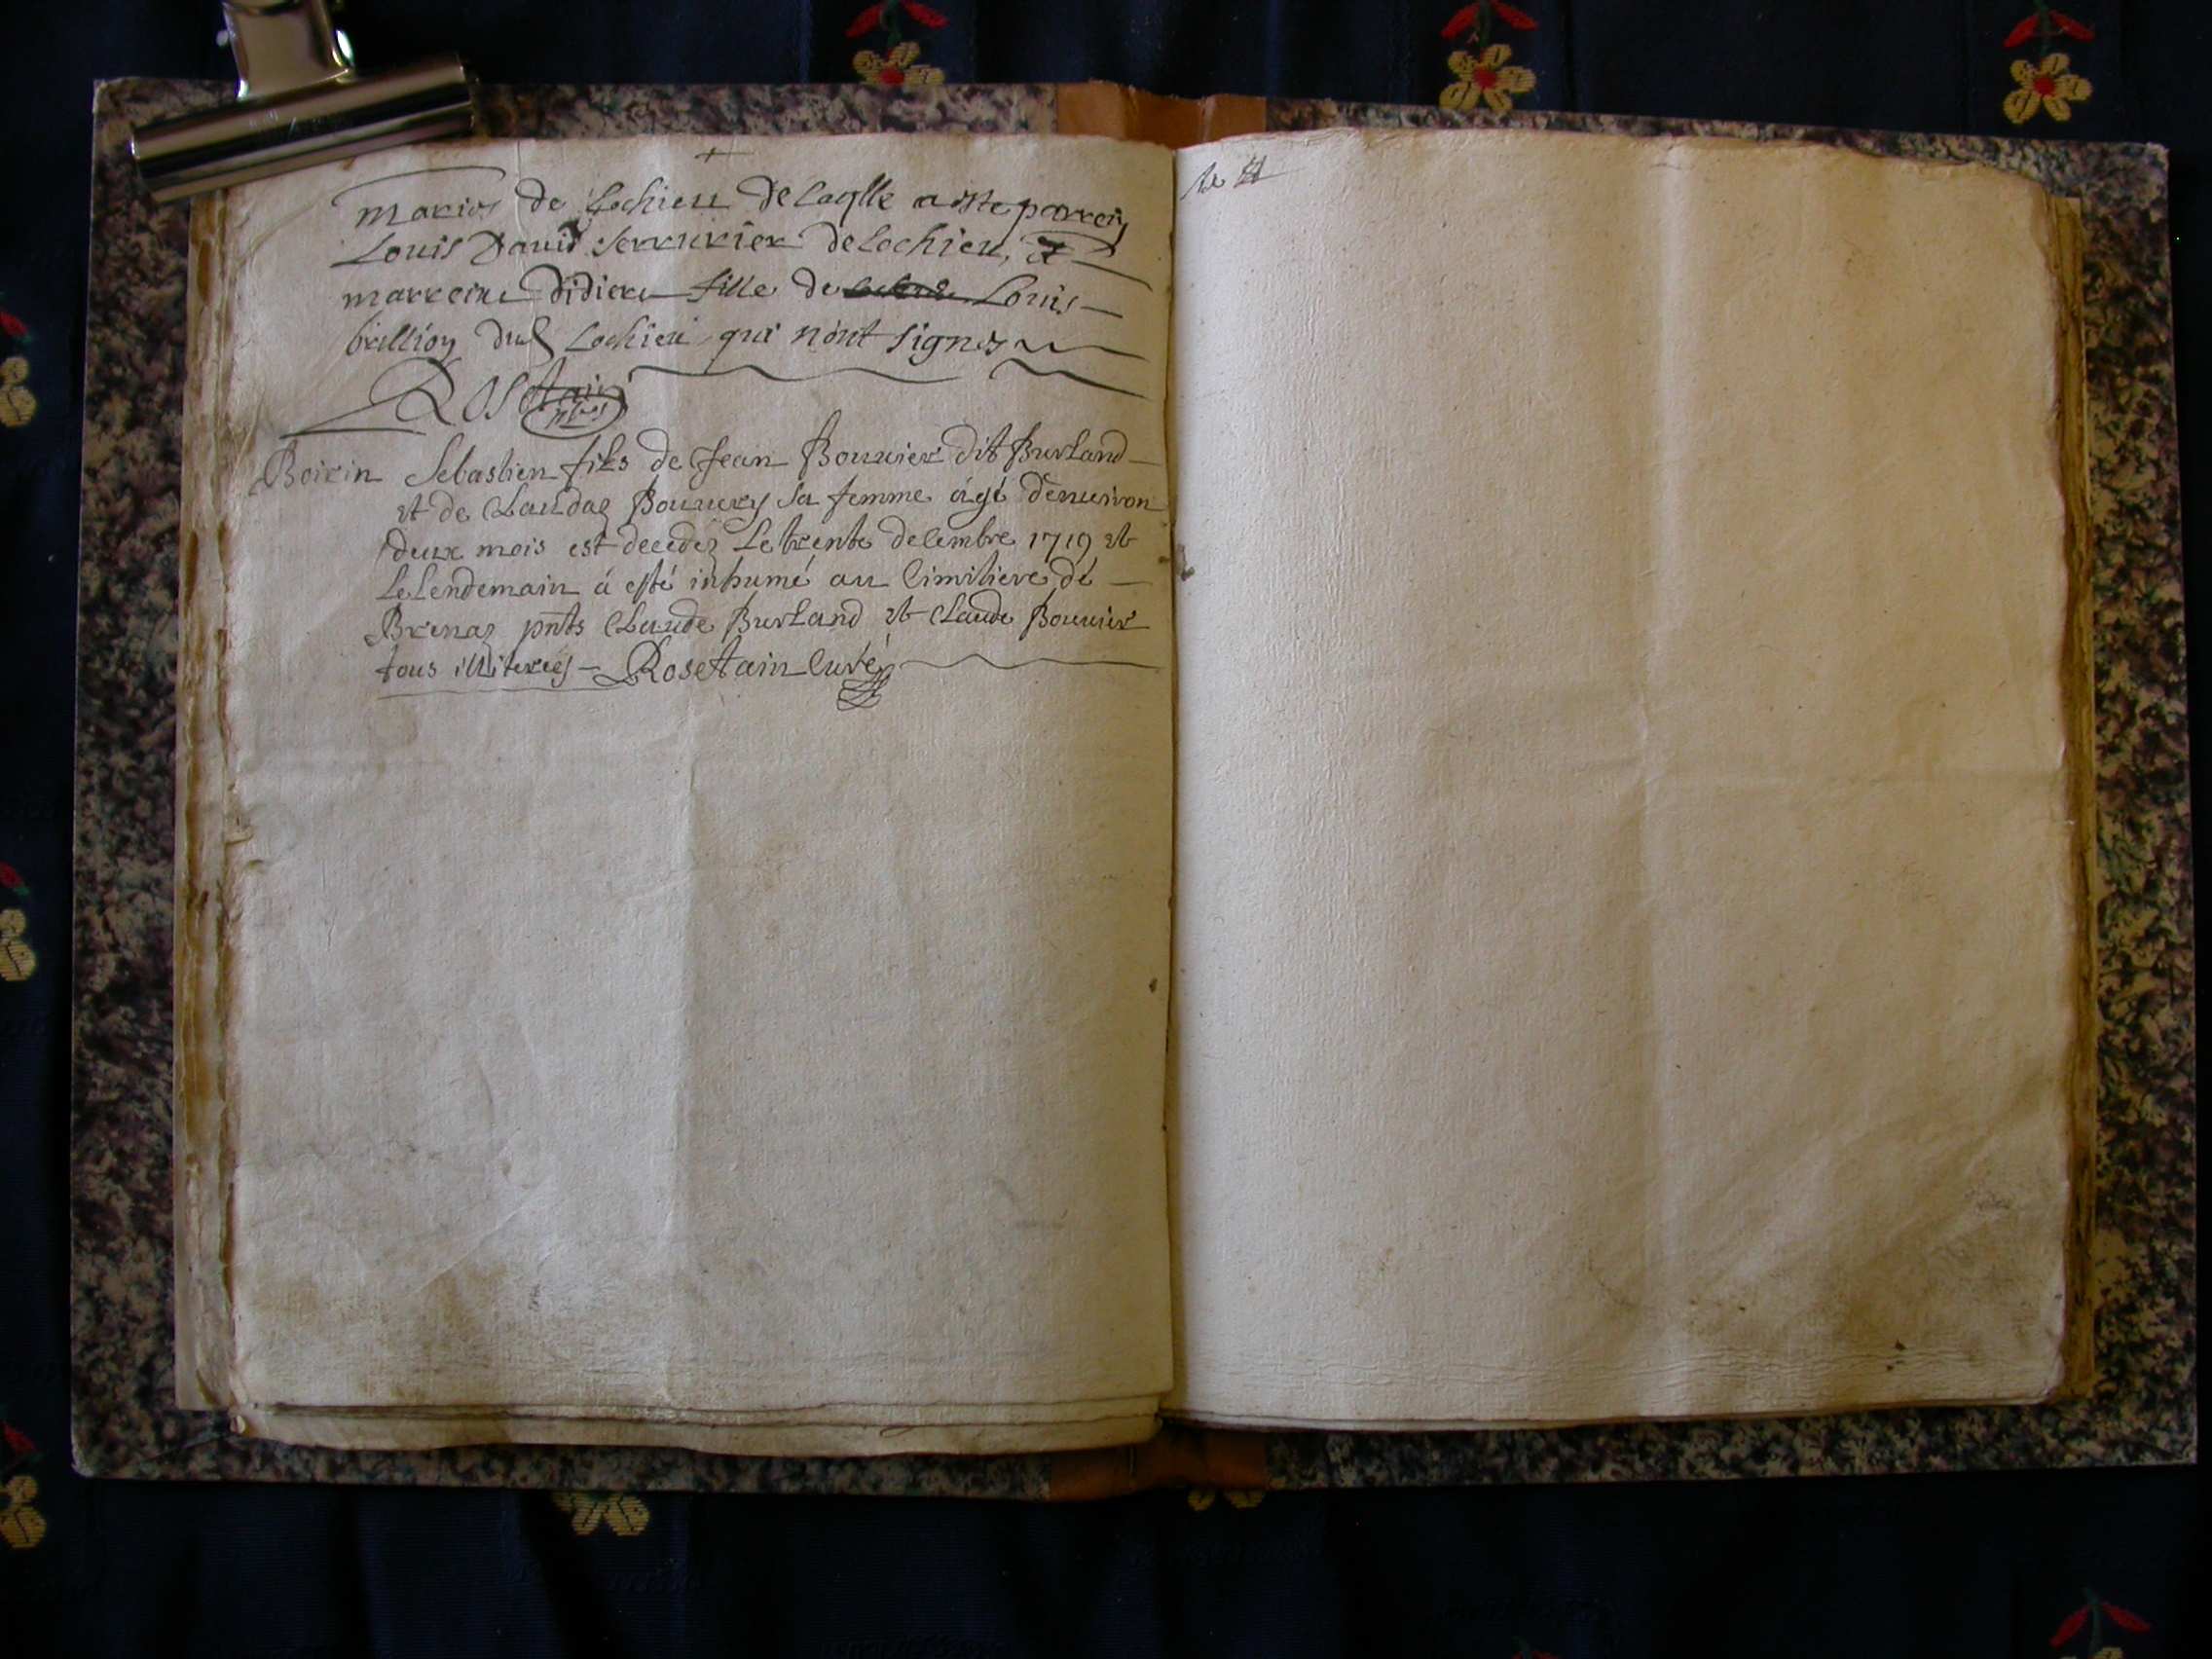 mariés de Lochieu de laqlle a este parrein
Louis David serrurier de Lochieu, et
marreine Didiere fille de Louis
brillion dud Lochieu qui n'ont signes
Rosetain
Boirin Sebastien fils de Jean Bouvier dit Burland
et de Claudaz Bouvery sa femme ágé d'enuiron
deux mois est decedez Le trente decembre 1719 et
Le Lendemain á esté inhumé au Cimitiere de
Brenaz pnts Claude Burland et Claude Bouvier
tous illiterés Rosetain Curé